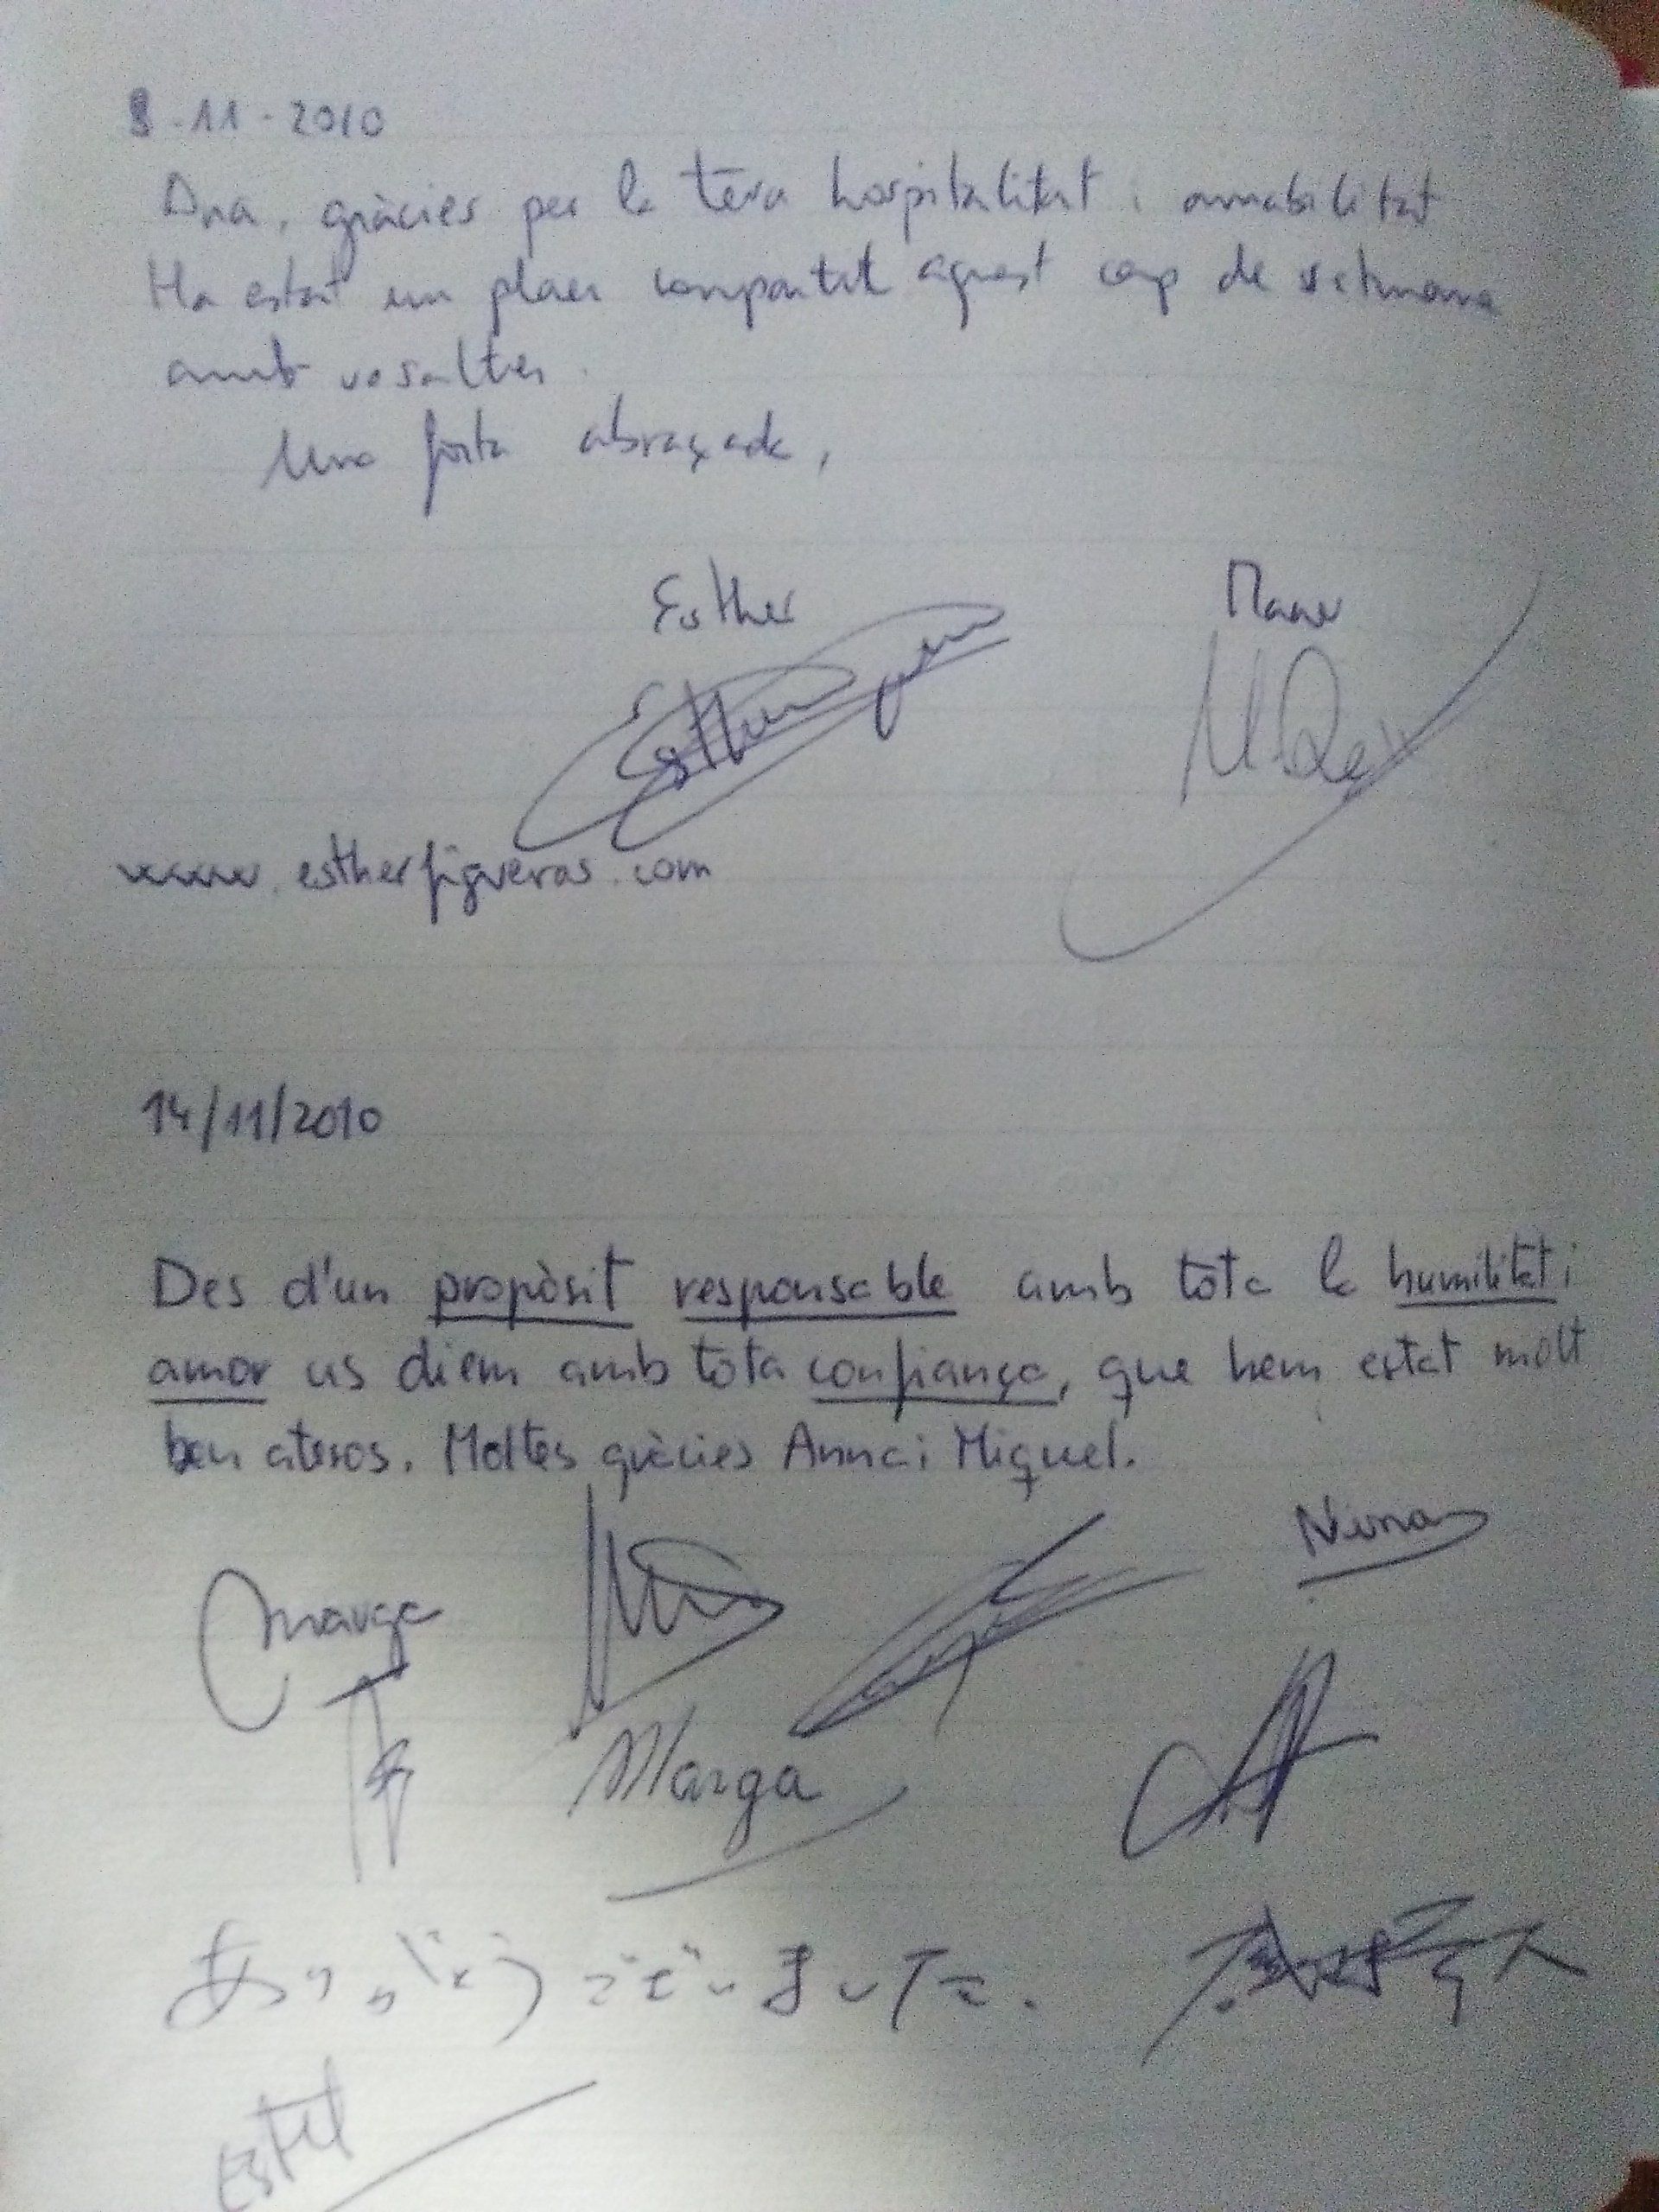 8-11-2010
Ana, gràcies per la teva hospitalitat i amabilitat
Ha estat un plaer compartit aquest cap de setmana
amb vosaltres.
Una forta abraçada,
Esther
www.estherfigueras.com
14/11/2010
Des d'un propòsit responsable amb tota la humilitat i
amor us diem amb tota confiança, que hem estat molt
ben atesos. Moltes gràcies Anna i Miquel.
Marga
Marga
ありがとうございました.
Estel